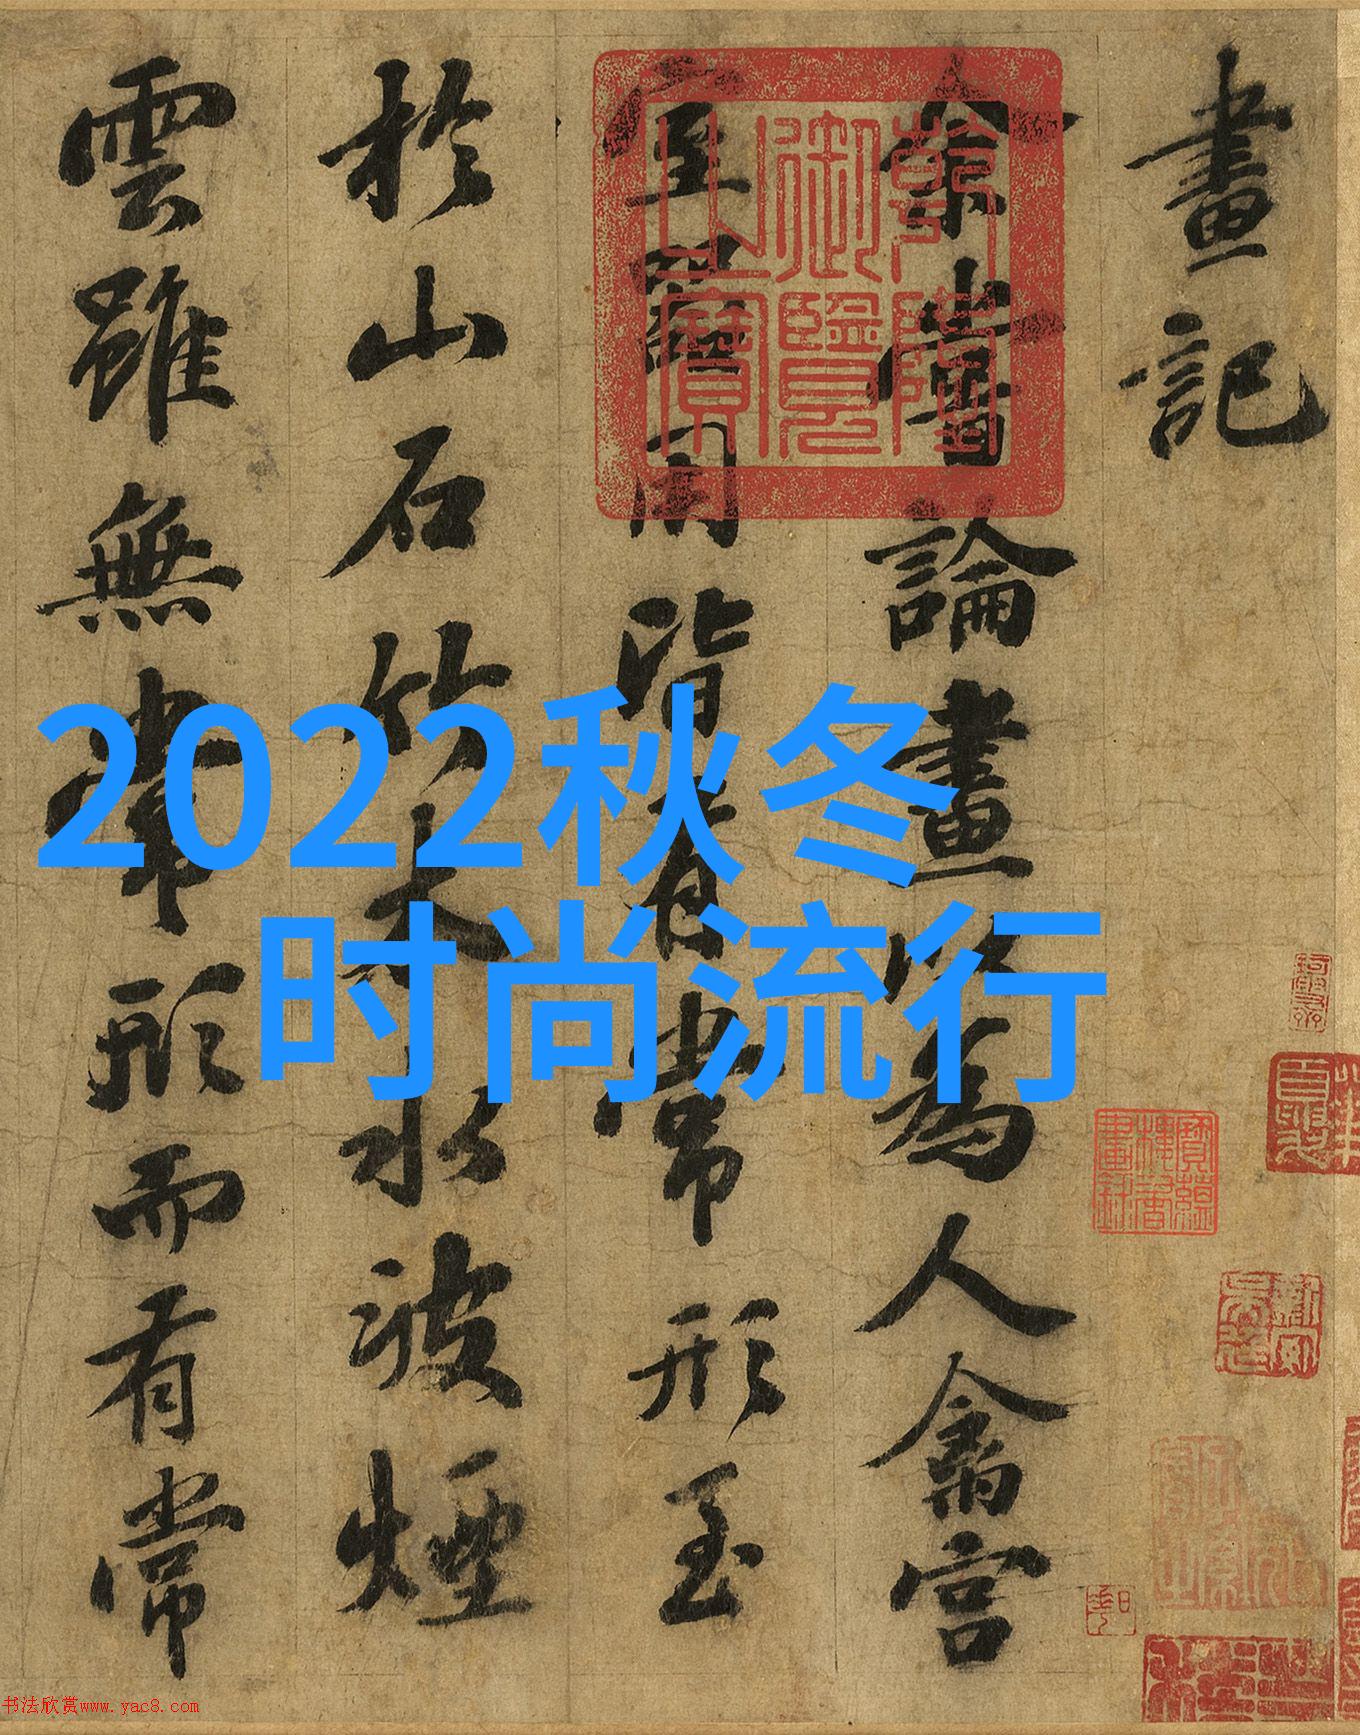 畫記
余嘗論畫以為人禽宮
室器用皆有常形至
於山石竹木水波煙
雲雖無常形而有常
乾隆
御覽
之寶
2022秋冬
时尚流行
书法欣赏www.yac8.com